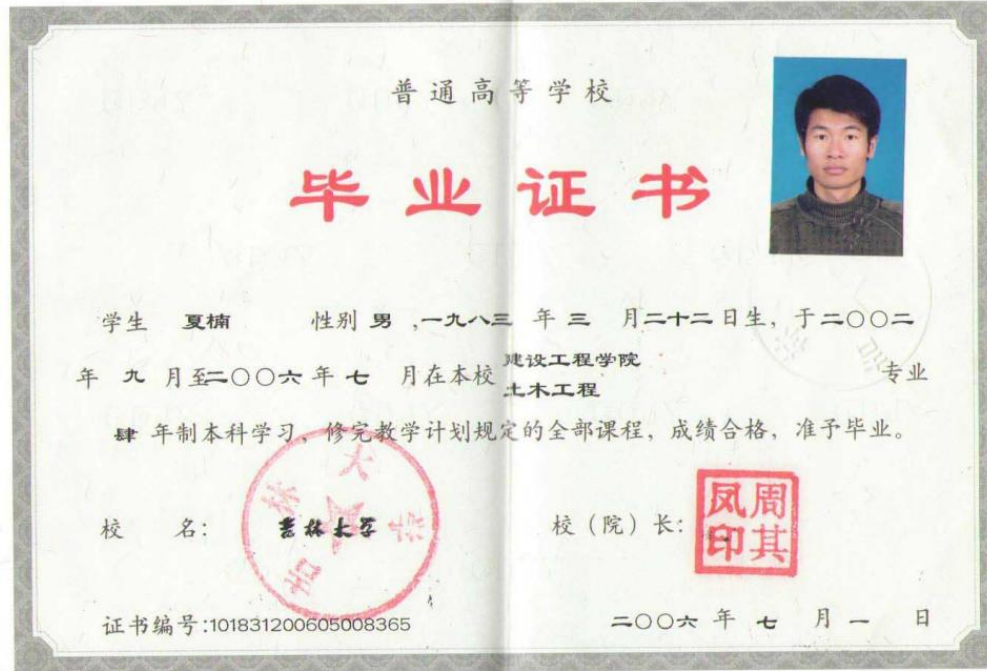 普通高等学校
毕业证书
学生 夏楠 性别 男 ,一九八三 年 三 月二十二日生，于二〇〇二
年 九 月至二〇〇六 年 七 月在本校 建设工程学院 土木工程 专业
肆 年制本科学习，修完教学计划规定的全部课程，成绩合格，准予毕业。
校 名： 吉林大学
吉林大学
校（院）长：
周其凤印
证书编号:101831200605008365
二〇〇六 年 七 月 一 日